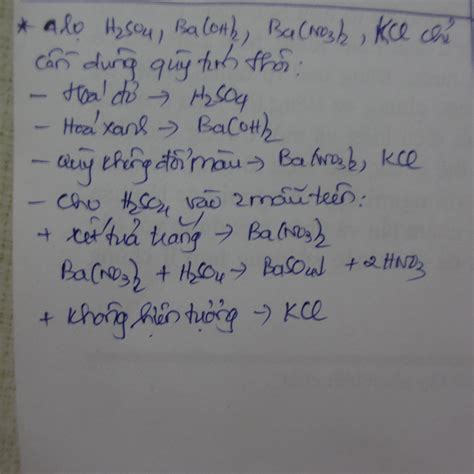 * a/ H₂SO₄, Ba(OH)₂, Ba(NO₃)₂, KCl chỉ
cần dùng quỳ tím thôi:
- Hoá đỏ → H₂SO₄
- Hoá xanh → Ba(OH)₂
- Quỳ không đổi màu → Ba(NO₃)₂, KCl
- Cho H₂SO₄ vào 2 mẫu trên:
+ xết tuả trắng → Ba(NO₃)₂
Ba(NO₃)₂ + H₂SO₄ → BaSO₄↓ + 2HNO₃
+ Không hiện tượng → KCl